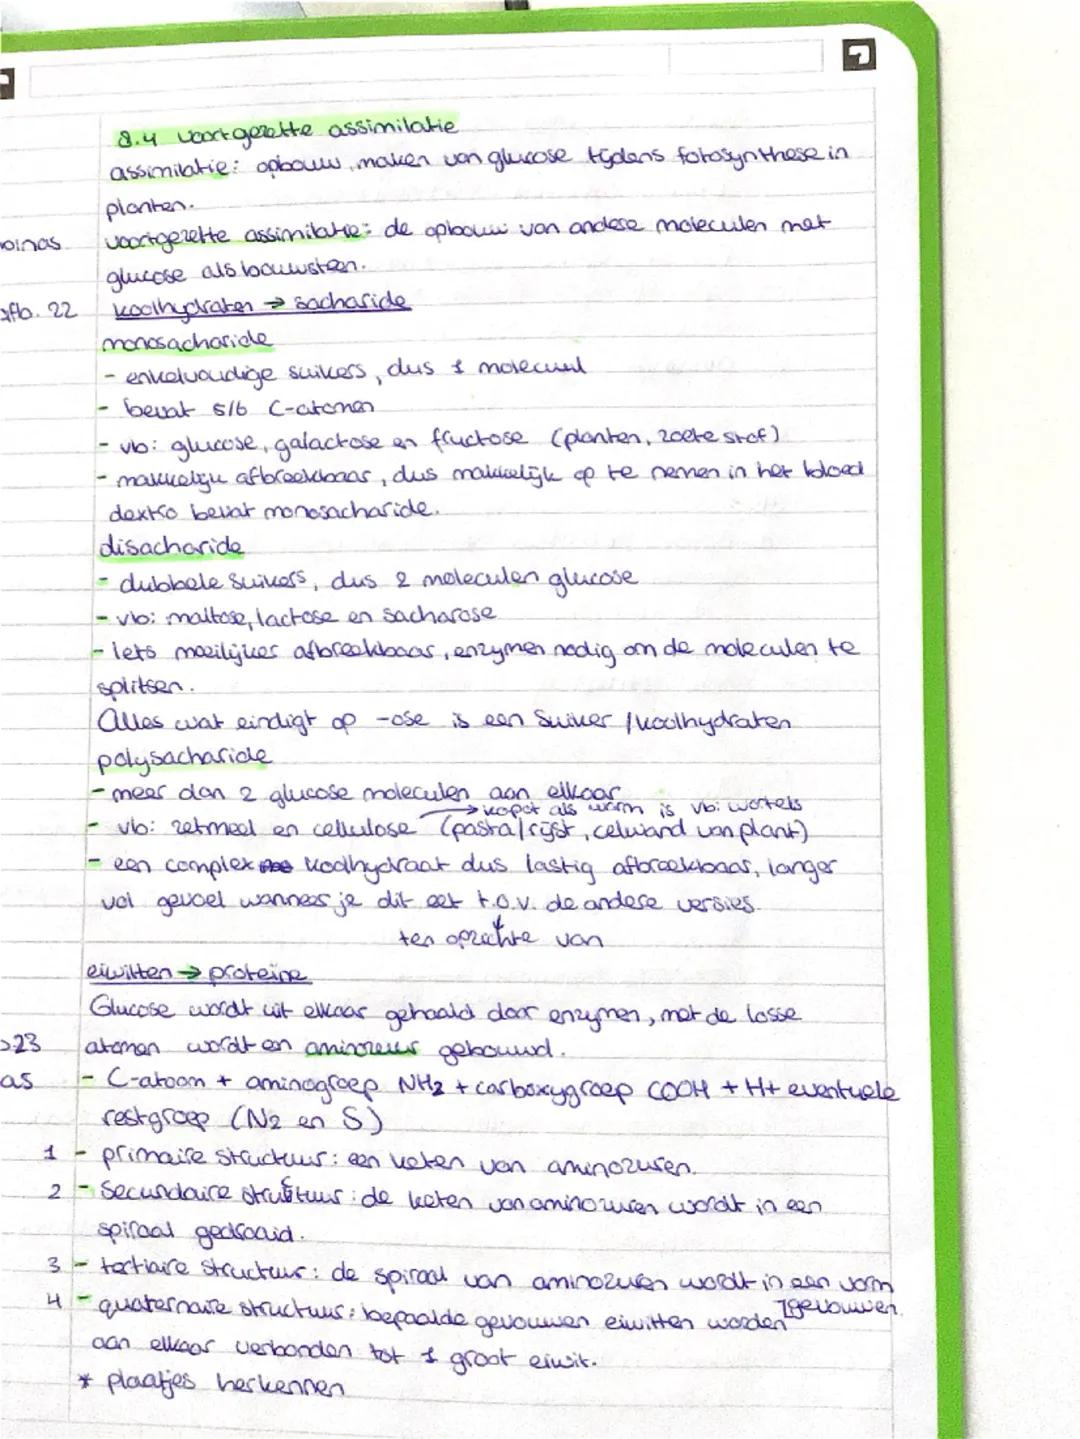 8.4 voortgezette assimilatie
assimilatie: opbouw, maken van glucose tijdens fotosynthese in
planten.
voortgezette assimilatie: de opbouw van andere moleculen met
glucose als bouwsteen.
afb. 22 koolhydraten → sacharide
monosacharide
- enkelvoudige suikers, dus 1 molecuul
- bevat 5/6 C-atomen
- vb: glucose, galactose en fructose (planten, zoete stof)
- makkelijk afbreekbaar, dus makkelijk op te nemen in het bloed
dextro bevat monosacharide.
disacharide
- dubbele suikers, dus 2 moleculen glucose
- vb: maltose, lactose en sacharose
- iets moeilijker afbreekbaar, enzymen nodig om de moleculen te
splitsen.
Alles wat eindigt op -ose is een suiker / koolhydraten
polysacharide
- meer dan 2 glucose moleculen aan elkaar
→ kapot als warm is vb: wortels
- vb: zetmeel en cellulose (pasta/rijst, celwand van plant)
- een complex koolhydraat dus lastig afbreekbaar, langer
vol gevoel wanneer je dit eet t.o.v. de andere versies.
ten opzichte van
eiwitten → proteine
Glucose wordt uit elkaar gehaald door enzymen, met de losse
23 atomen worden aminozuur gebouwd.
as - C-atoom + aminogroep NH2 + carboxygroep COOH + H+ eventuele
restgroep (N2 en S)
1 - primaire structuur: een keten van aminozuren.
2 - Secundaire structuur: de keten van aminozuren wordt in een
spiraal gedraaid.
3 - tertiaire structuur: de spiraal van aminozuren wordt in een vorm
gevouwen.
4 - quaternaire structuur: bepaalde gevouwen eiwitten worden
aan elkaar verbonden tot 1 groot eiwit.
* plaatjes herkennen